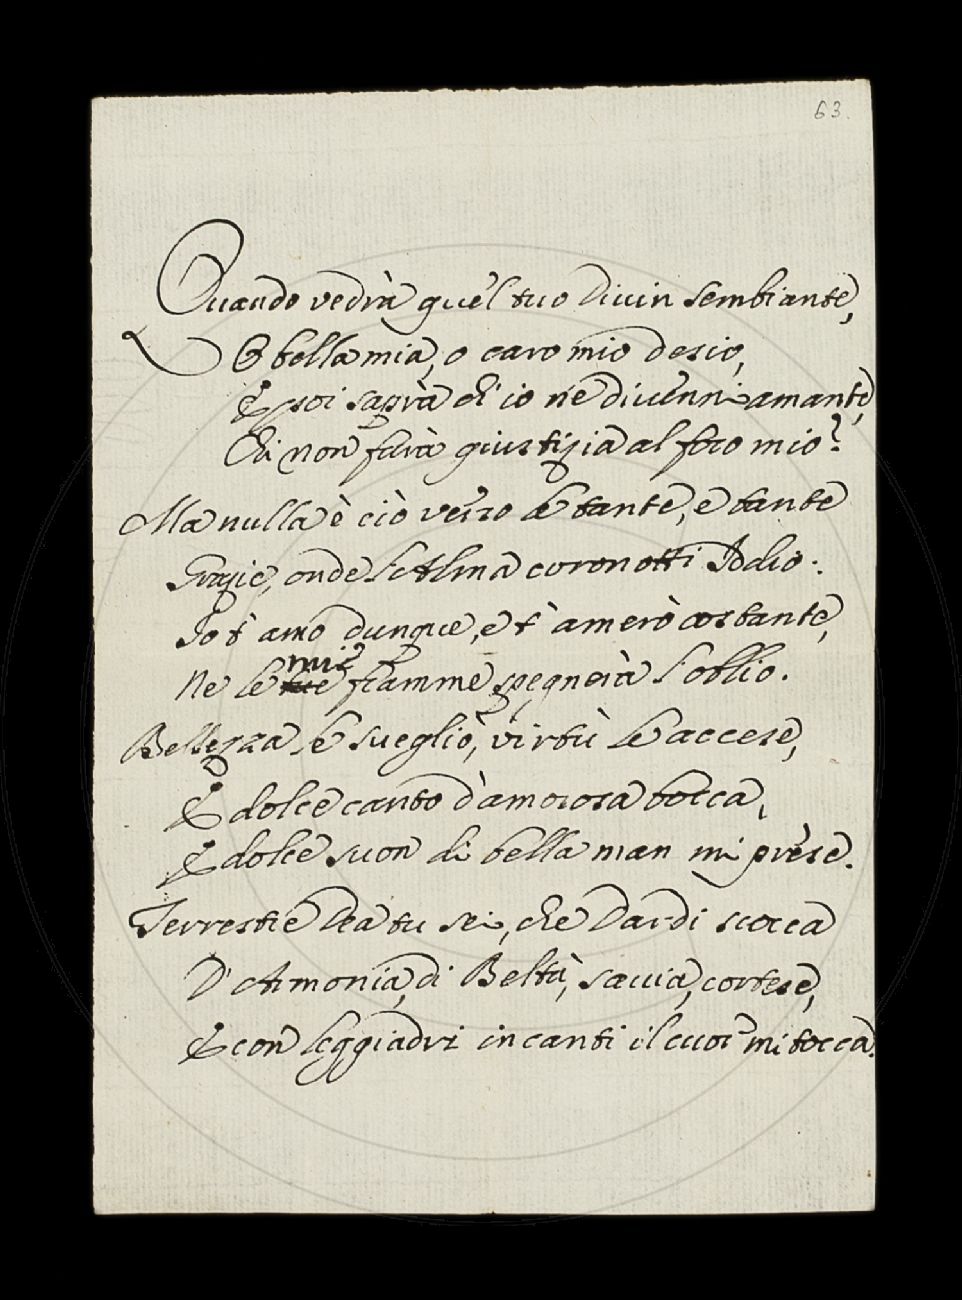 63.
Quando vedrà quel tuo Divin Sembiante,
O bella mia, o caro mio desio,
E poi saprà ch'io ne divenni amante,
Chi non farà giustizia al foco mio?
Ma nulla è ciò verso le tante, e tante
Grazie, onde l'Alma coronotti Iddio:
Io t'amo dunque, e t'amerò costante,
mie
Ne le tue fiamme spegnerà l'oblio.
Bellezza le svegliò, virtù le accese,
E dolce canto d'amorosa bocca,
E dolce suon di bella man mi prèse.
Terrestre Dea tu sei, che Dardi scocca
D'Armonia, di Beltà, savia, cortese,
E con leggiadri incanti il cuor mi tocca.